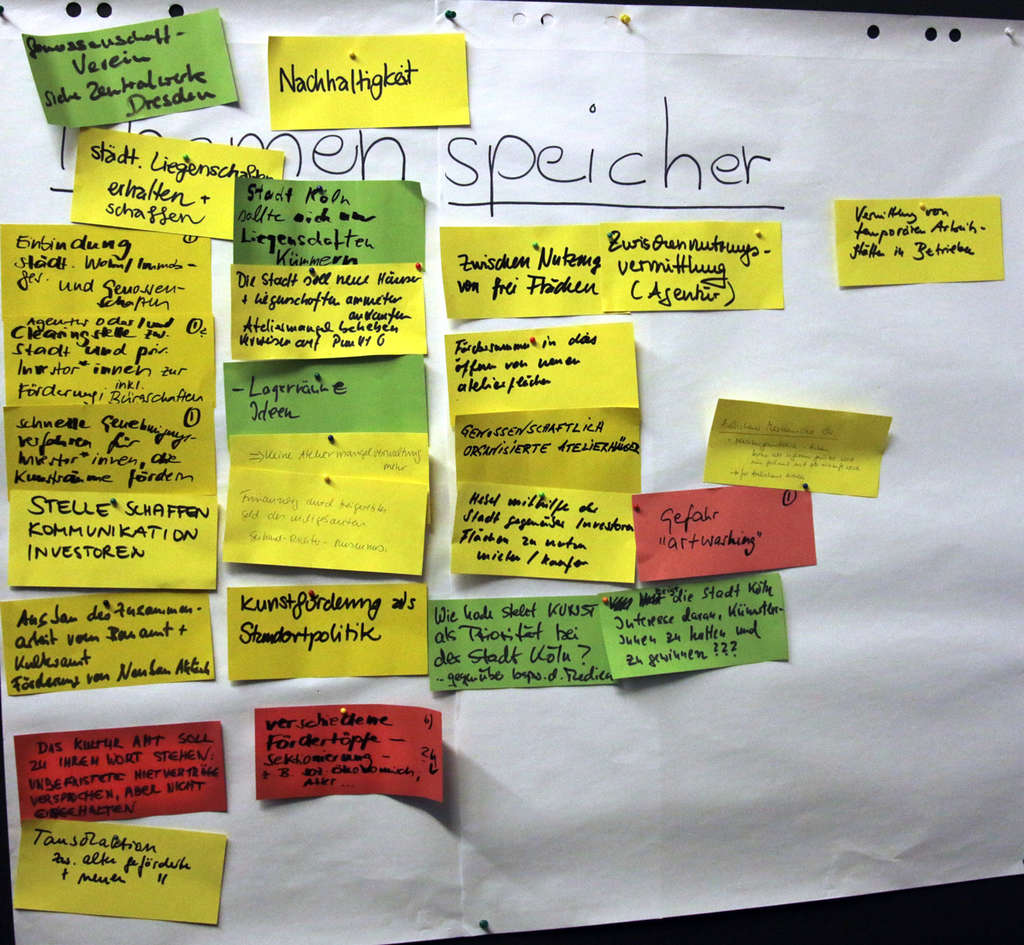 Genossenschaft-
Verein
siehe Zentralwerk
Dresden
Nachhaltigkeit
Themenspeicher
städt. Liegenschaften
erhalten +
schaffen
Stadt Köln
sollte sich um
Liegenschaften
kümmern
Einbindung ①
städt. Wohn/Immob-
ges. und Genossen-
schaften
Agentur oder/und ①
Clearingstelle zw.
Stadt und priv.
Investor*innen zur
Förderung; inkl.
Bürgschaften
schnelle Genehmigungs- ①
verfahren für
Investor*innen, die
Kunsträume fördern
STELLE SCHAFFEN
KOMMUNIKATION
INVESTOREN
Ausbau der Zusammen-
arbeit von Bauamt +
Kulturamt
Förderung von Neubau
DAS KULTUR AMT SOLL
ZU IHREM WORT STEHEN:
UNBEFRISTETE MIETVERTRÄGE
VERSPROCHEN, ABER NICHT
EINGEHALTEN
zw. alten geförderten
+ neuen "
Die Stadt soll neue Häuser
+ Liegenschaften anmieten
ankaufen
Ateliermangel beheben
verweisen auf Punkt 6
- Lagerräume
Ideen
=> keine Ateliermangelverwaltung
mehr
Finanzierung durch
Kunstförderung als
Standortpolitik
verschiedene
Fördertöpfe -
Sektionierung -
z.B. soz-ökonomisch,
Alter...
Zwischen Nutzung
von frei Flächen
Zwischennutzungs-
vermittlung
(Agentur)
Fördersummen in das
öffnen von neuen
atelierflächen
GENOSSENSCHAFTLICH
ORGANISIERTE ATELIERHÄUSER
mithilfe der
Stadt gegenüber Investoren
Flächen zu nutzen
mieten/kaufen
Gefahr ①
"artwashing"
Wie hoch steht KUNST
als Priorität bei
der Stadt Köln?
..gegenüber bspw. d. Medien
die Stadt Köln
Interesse daran, Künstler-
innen zu halten und
zu gewinnen???
Vermittlung von
temporären Arbeits-
stätten in Betrieben